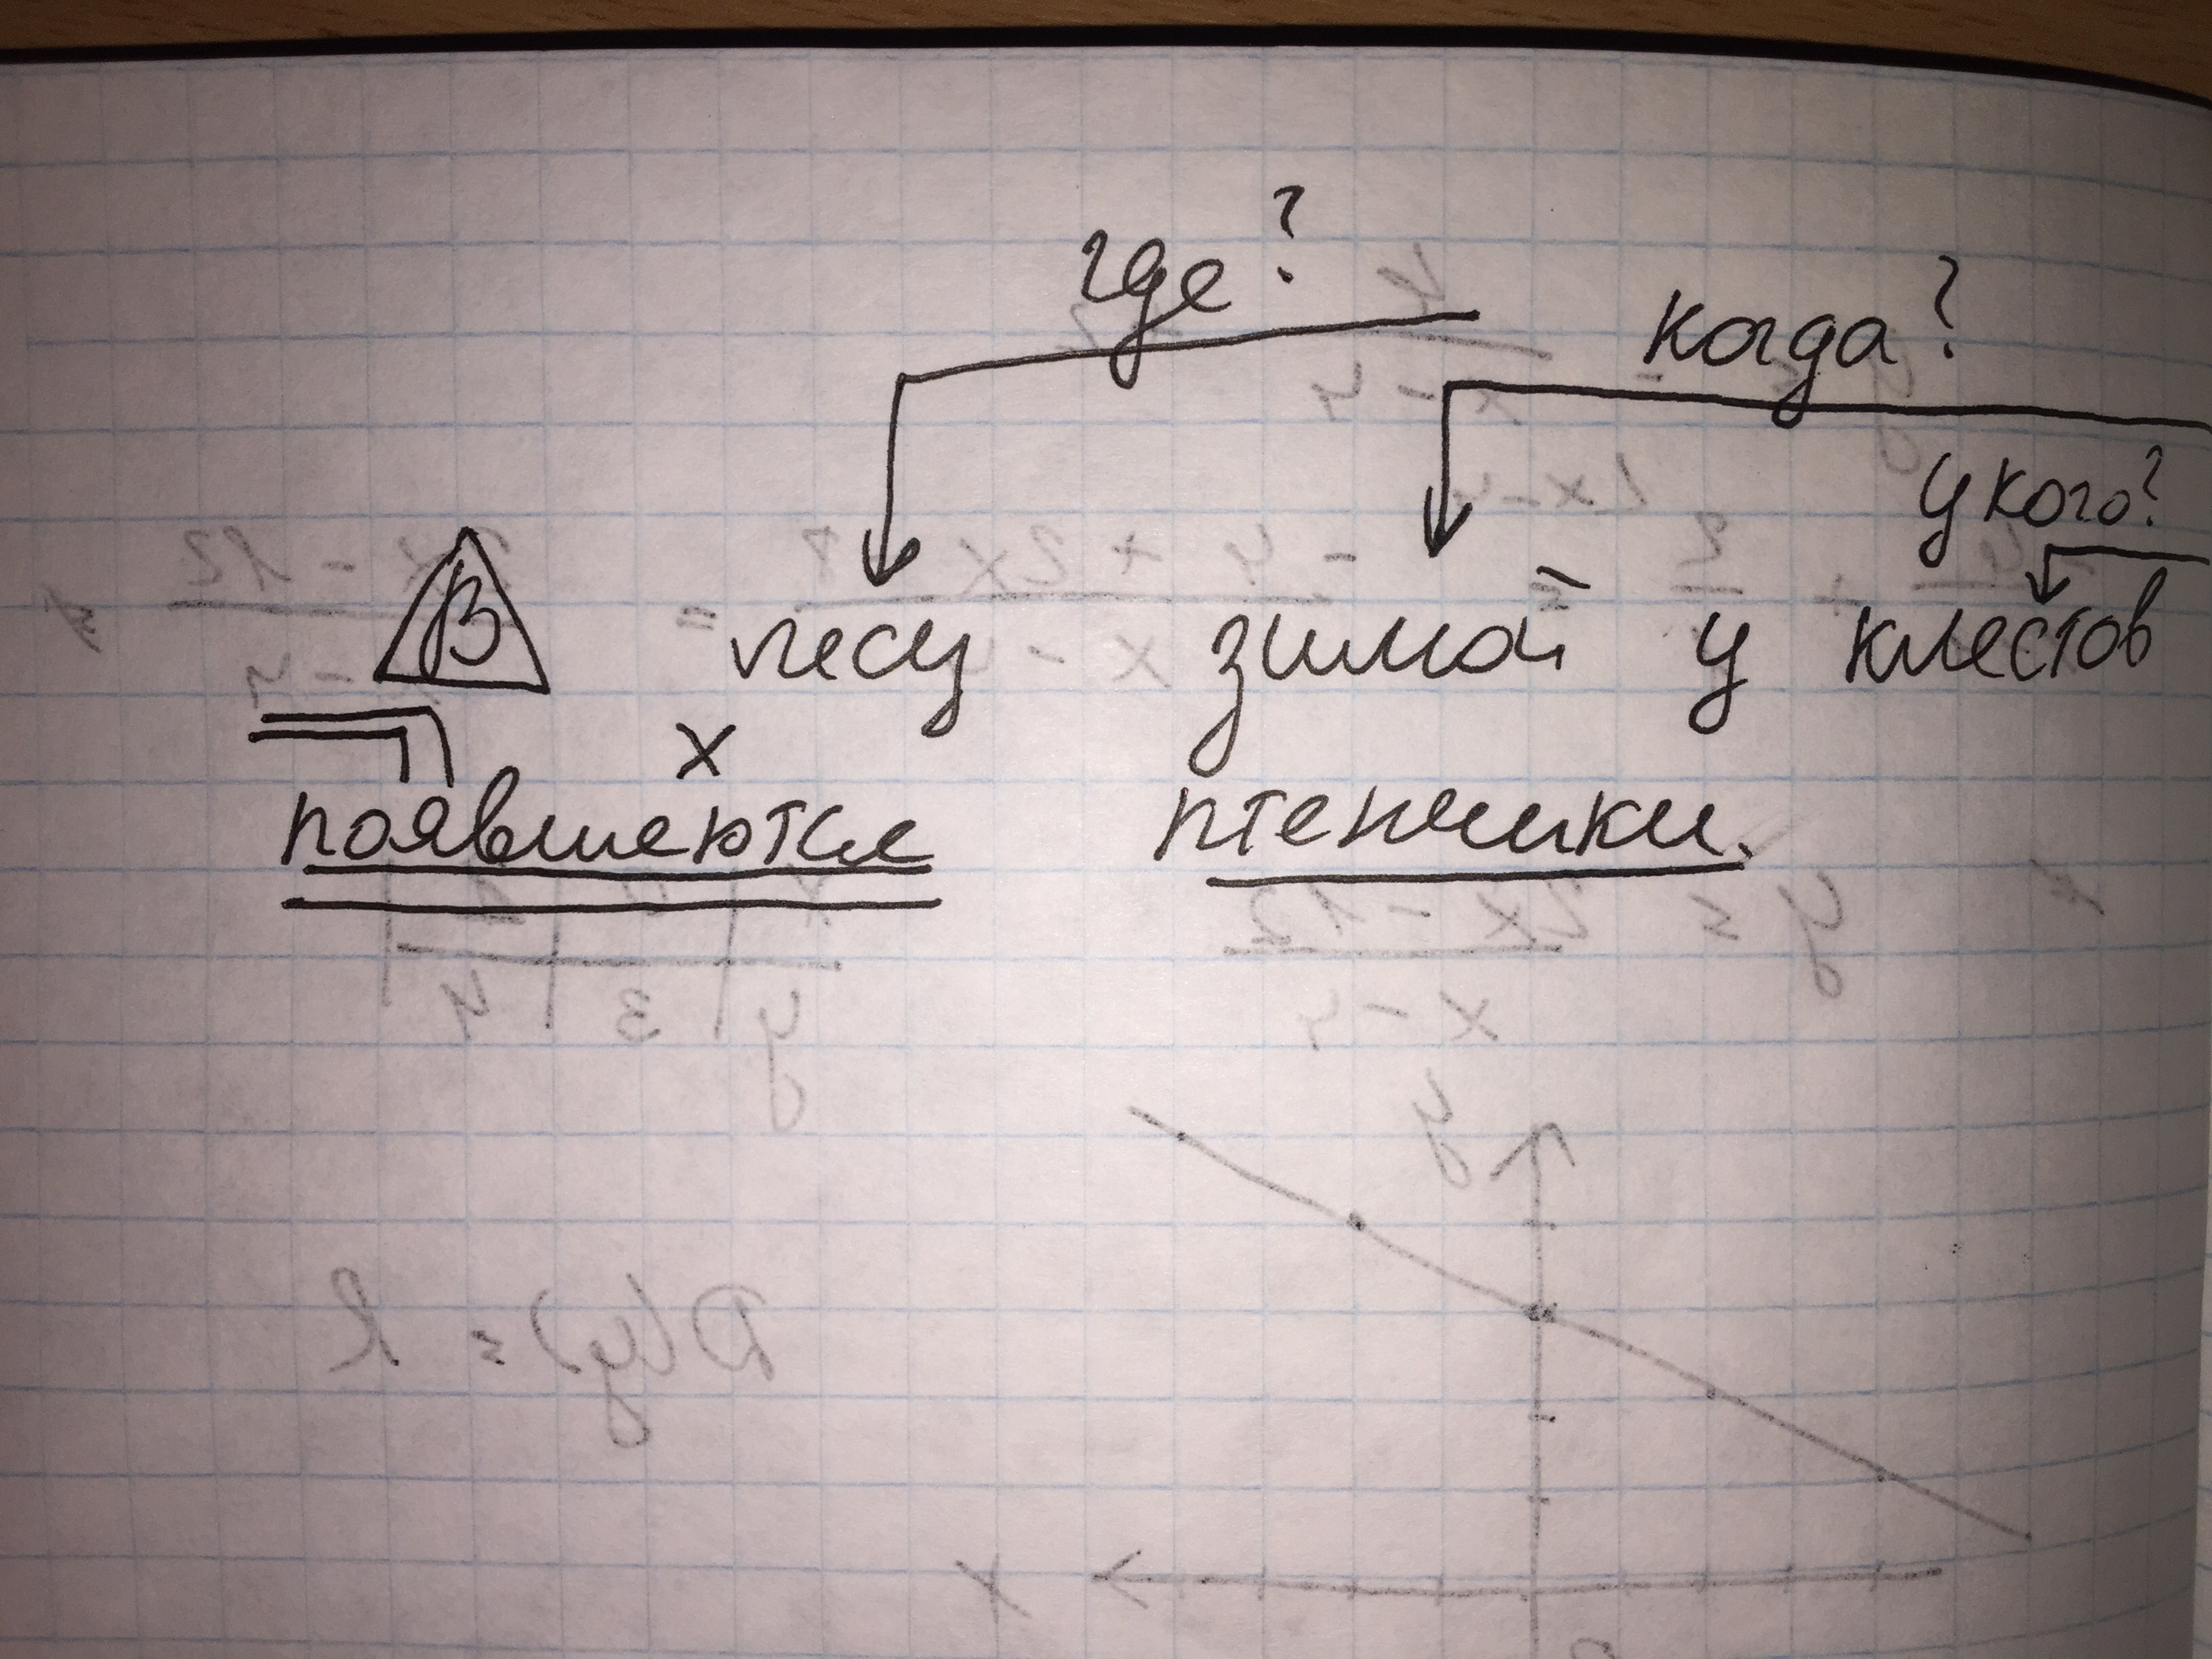 где?
когда?
у кого?
В лесу зимой у клестов
x
появляются птенчики.